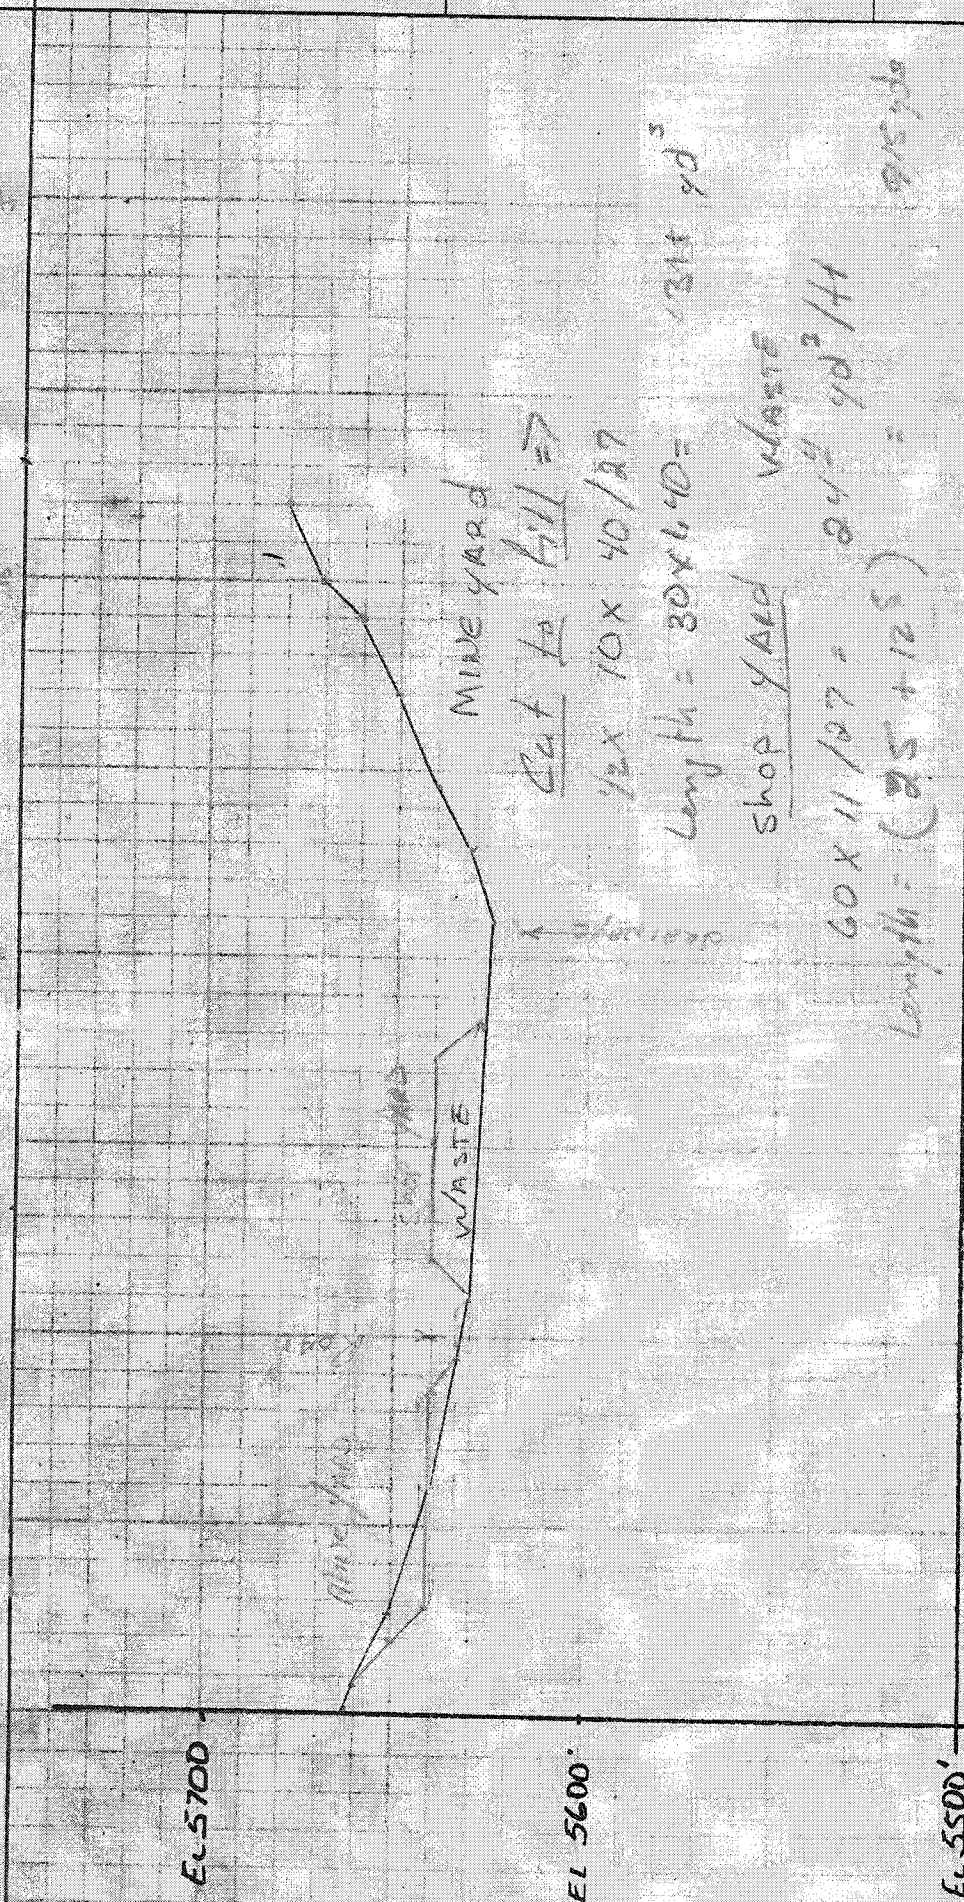 EL 5700
EL 5600'
EL 5500'
Mine Yard
Road
SHOP YARD
WASTE
drainage
MINE YARD
Cut to fill =>
1/2 x 10 x 40/27
Length = 30 x 40 =
yd³
Shop YARD WASTE
60 x 11/27 = 24.4 yd³/ft
Length = (25 + 125) =
yds